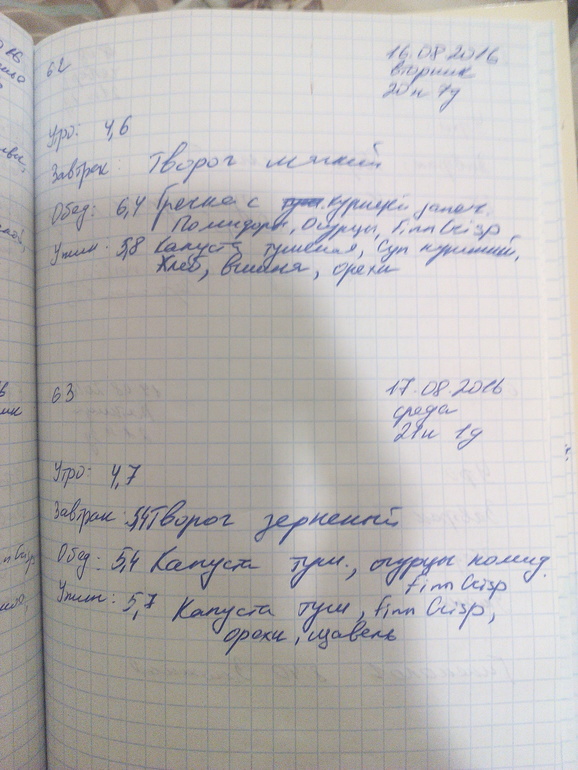 62
16.08.2016
вторник
20н 7д
Утро: 4,6
Завтрак: Творог мягкий
Обед: 6,4 Гречка с курицей запеч.
Помидоры, Огурцы, Finn Crisp
Ужин: 5,8 Капуста тушеная, суп куриный,
Хлеб, вишня, орехи
63
17.08.2016
среда
21н 1д
Утро: 4,7
Завтрак: 5,4 Творог зерненый
Обед: 5,4 Капуста туш., огурцы помид.
Finn Crisp
Ужин: 5,7 Капуста туш, Finn Crisp,
орехи, щавель